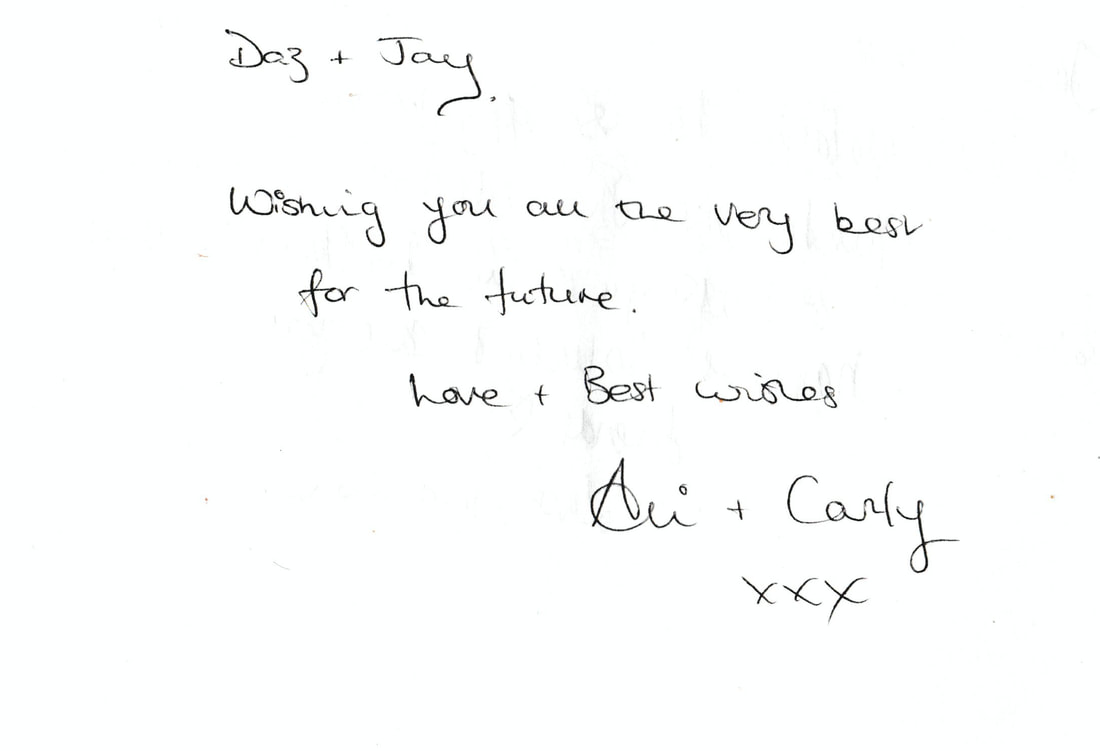 Daz + Jay,
Wishing you all the very best
for the future.
Love + Best wishes
Ali + Carly
xxx